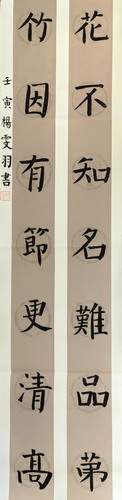 花不知名難品苐
竹因有節更清高
壬寅楊雯羽書